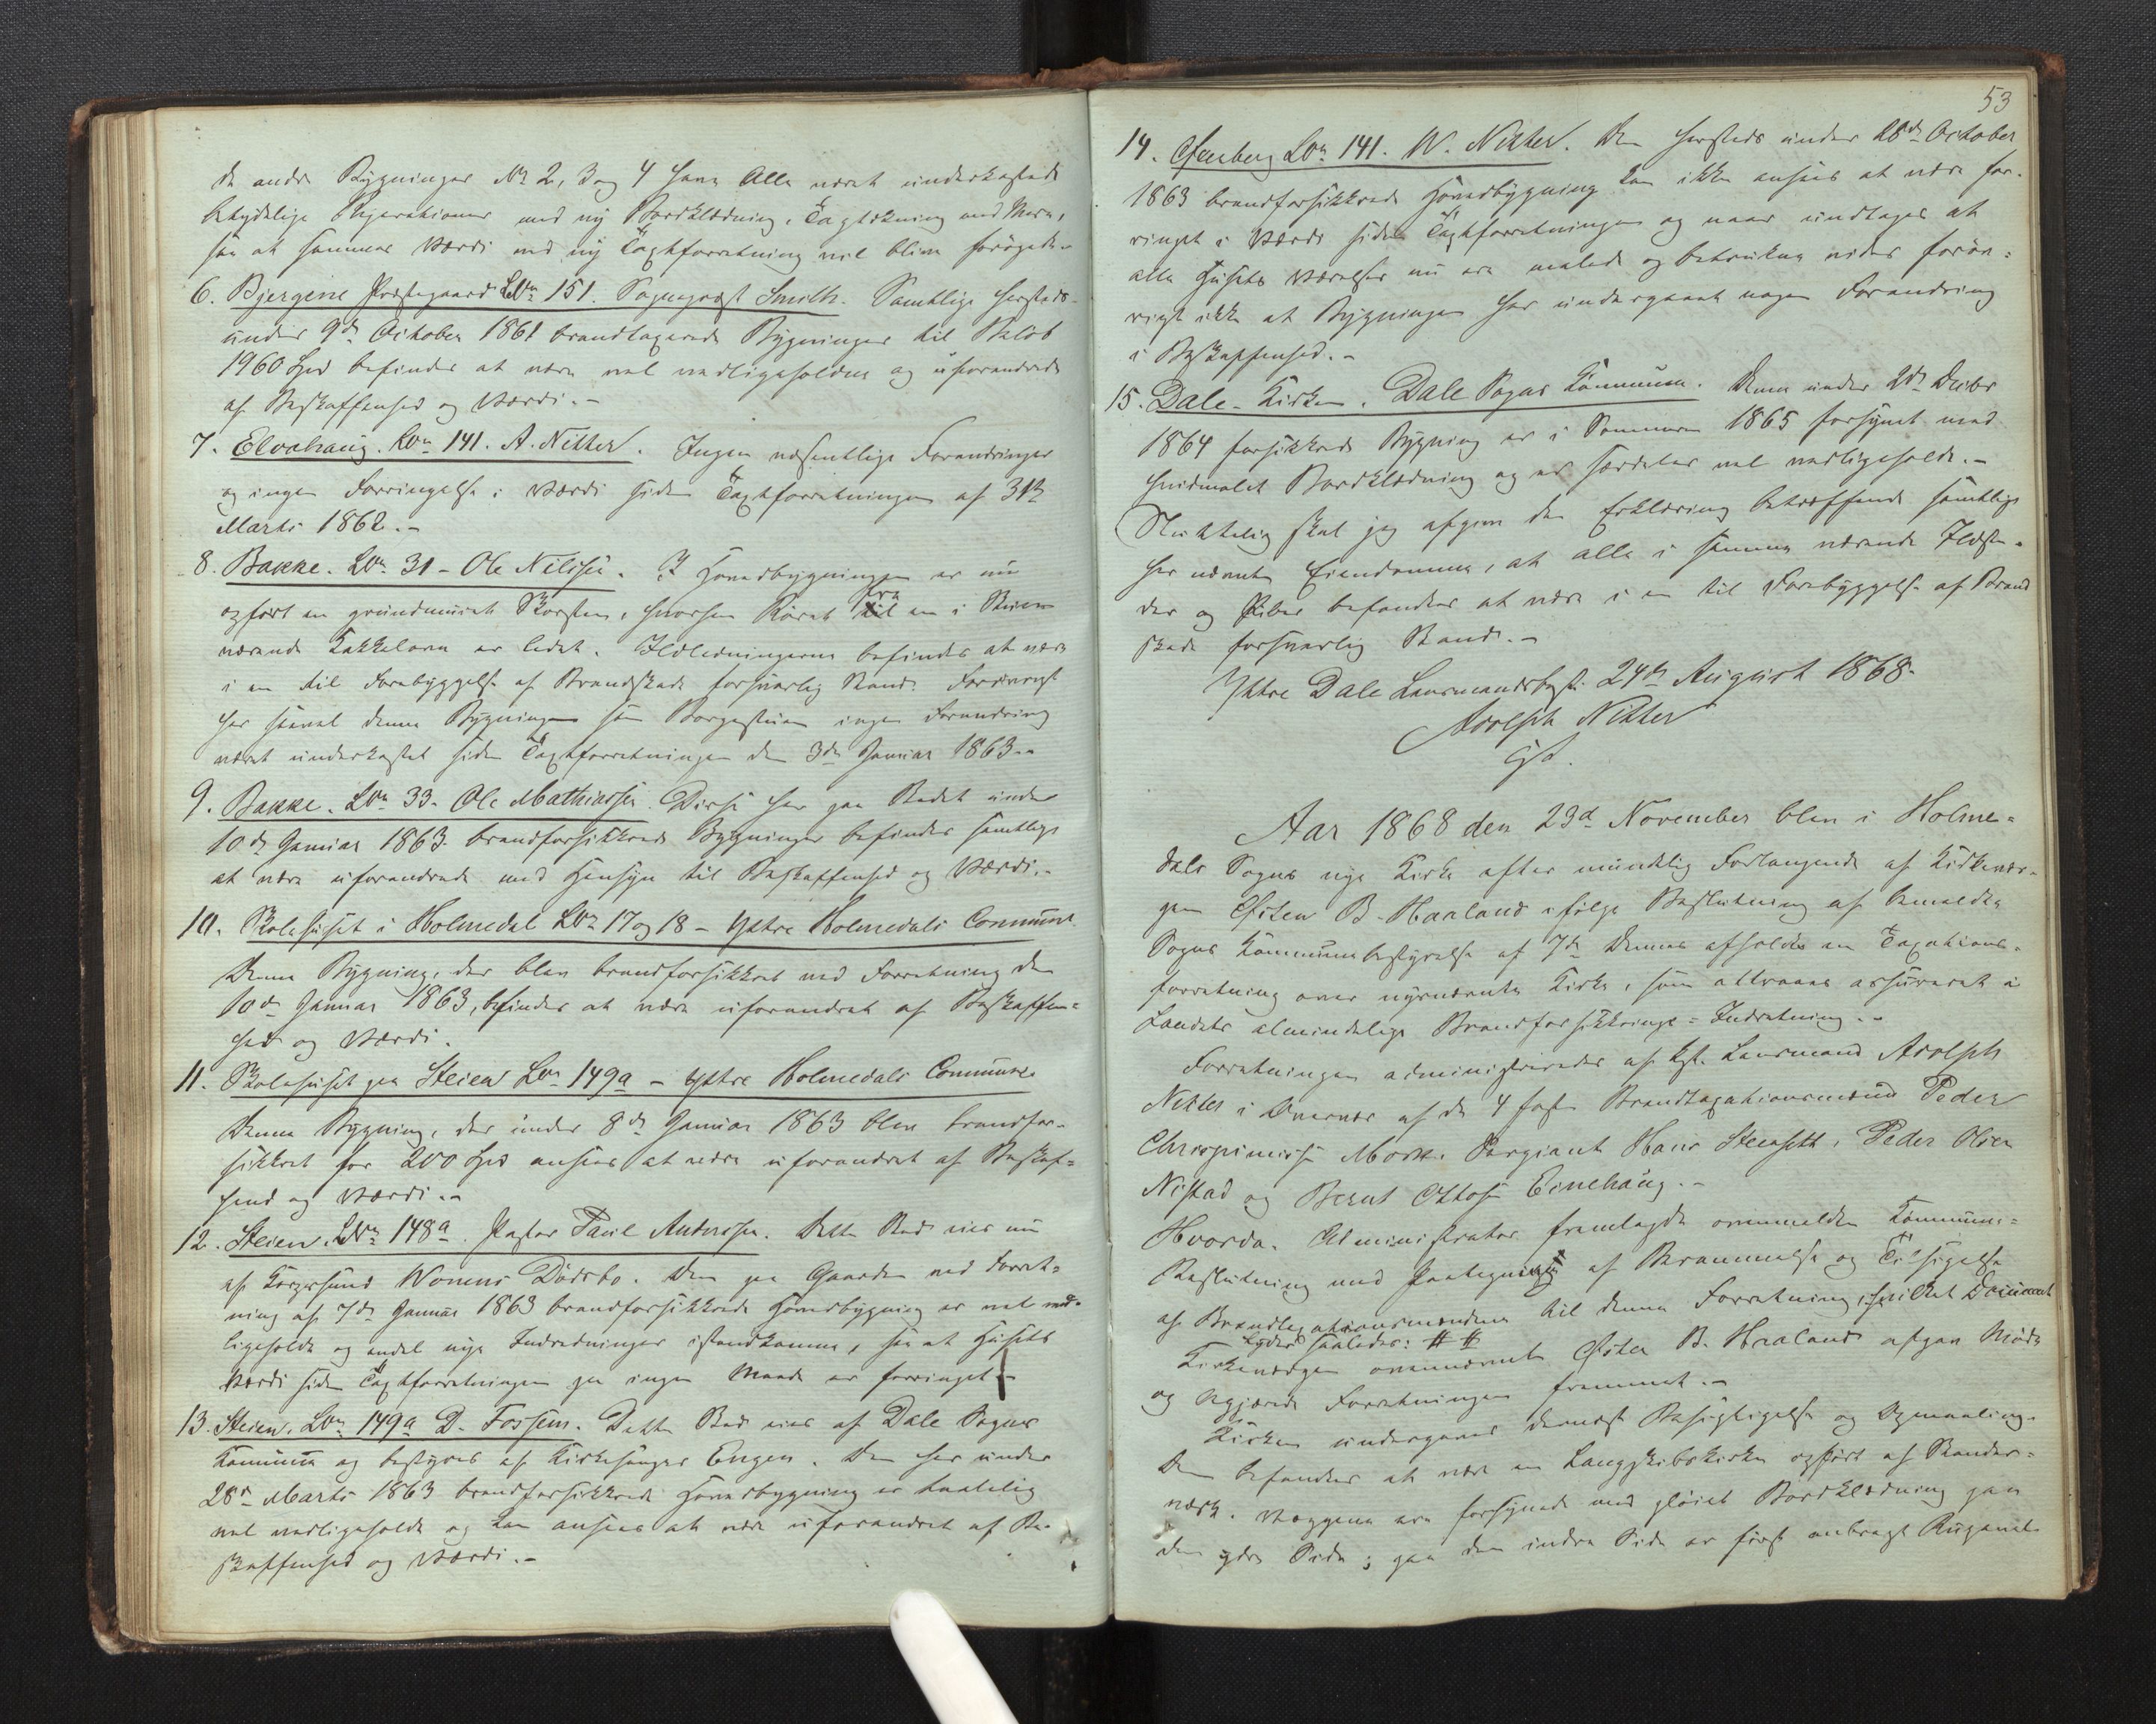 de andre Bygninger No 2, 3 og 4 have Alle været underkastede
betydelige Reparationer med ny Bordklædning, Tagtækning med Mere,
saa at sammes Værdi ved ny Taxtforretning vil blive forøgede.-
6. Bjergene Præstegaard Lbn 151. Sognepræst Smith. Samtlige hersteds
under 9de October 1861 brandtaxerede Bygninger til Beløb
1960 Spd befindes at være vel vedligeholdne og uforandrede
af Beskaffenhed og Værdi.-
7. Elvehaug. Lbn 141. A. Nitter. Ingen væsentlige Forandringer
og ingen Forringelse i Værdi siden Taxtforretningen af 31te
Marts 1862.-
8. Bakke. Lbn 31 - Ole Nilssen. I Hovedbygningen er nu
opført en grundmuret Skorsten, hvorhen Røret fra en i Stuen
værende Kakkelovn er ledet. Ildledningerne befindes at være
i en til Forebyggelse af Brandskade forsvarlig Stand. Forøvrigt
har saavel denne Bygningen som Borgestuen ingen Forandring
været underkastet siden Taxtforretningen den 3de Januar 1863.-
9. Bakke. Lbn 33. Ole Mathiassen. Disse her paa Stedet under
10de Januar 1863 brandforsikkrede Bygninger befindes samtlige
at være uforandrede med Hensyn til Beskaffenhed og Værdi.-
10. Skolehuset i Holmedal Lbn 17 og 18 - Ytre Holmedals Commune
Denne Bygning, der blev brandforsikkret ved Forretning den
10de Januar 1863, befindes at være uforandret af Beskaffen=
hed og Værdi.
11. Skolehuset paa Steien Lbn 149a - Ytre Holmedals Commune.
Denne Bygning, der under 8de Januar 1863 blev brandfor-
sikkret for 200 Spd ansees at være uforandret af Beskaf=
fenhed og Værdi.-
12. Steien. Lbn 148a. Pastor Paul Anderssen. Dette Sted eies nu
af Dødsbo. Den paa Gaarden ved Forret=
ning af 7de Januar 1863 brandforsikkrede Hovedbygning er vel ved-
ligeholdt og endel nye Indredninger istandkomne, saa at Husets
Værdi siden Taxtforretningen paa ingen Maade er forringet.-
13. Steien. Lbn 149a D. Fossum. Dette Sted eies af Dale Sogns
Kommune og bestyres af Kirkesanger Engen. Den her under
28de Marts 1863 brandforsikkrede Hovedbygning er taalelig
vel vedligeholdt og kan ansees at være uforandret af Be-
skaffenhed og Værdi.-
53
14. Lbn 141. W. Nitter. Den hersteds under 28de October
1863 brandforsikkrede Hovedbygning kan ikke ansees at være for-
ringet i Værdi siden Taxtforretningen og naar undtages at
alle Husets Værelser nu ere malede og betrukne vides forøv=
rigt ikke at Bygningen har undergaaet nogen Forandring
i Beskaffenhed.-
15. Dale-Kirke. Dale Sogns Kommune. Denne under 2de Decbr
1864 forsikkrede Bygning er i Sommeren 1865 forsynet med
hvidmalet Bordklædning og er særdeles vel vedligeholdt.-
Sluttelig skal jeg afgive den Erklæring betræffende samtlige
her nævnte Eiendomme, at alle i samme værende Ildste-
der og Piber befandtes at være i en til Forebyggelse af Brand
skade forsvarlig Stand.-
Ytre Dale Lensmandsbest. 24de August 1868.
Adolph Nitter
Cst.
Aar 1868 den 23d November blev i Holme=
dals Sogns nye Kirke efter mundtlig Forlangende af Kirkevær-
gen Østen B. Haaland ifølge Beslutning af bemeldte
Sogns Kommunebestyrelse af 7de Dennes afholdt en Taxations-
forretning over nysnævnte Kirke, som attraaes assureret i
Landets almindelige Brandforsikkrings=Indretning.-
Forretningen administreredes af Cst. Lensmand Adolph
Nitter i Overvær af de 4 faste Brandtaxationsmænd Peder
Chrispinussen Mork. Sergiant Hans Steensett, Peder Olsen
Nistad og Bernt Ottosen Eivehaug.-
Hvorda. Administrator fremlagde ovenmeldte Kommune=
Beslutning med Paategning af Berammelse og Tilsigelse
af Brandtaxationsmændene til denne Forretning, hvilket Document
lyder saaledes: # #
Kirkeværgen ovennævnte Østen B. Haaland afgav Møde
og begjærede Forretningen fremmet.-
Kirken undergaves dernæst Besigtigelse og Opmaaling.
Den befandtes at være en Langskibskirke opført af Stender=
værk. Væggene ere forsynede med pløiet Bordklædning paa
den ydre Side; paa den indre Side er først anbragt Rupanel